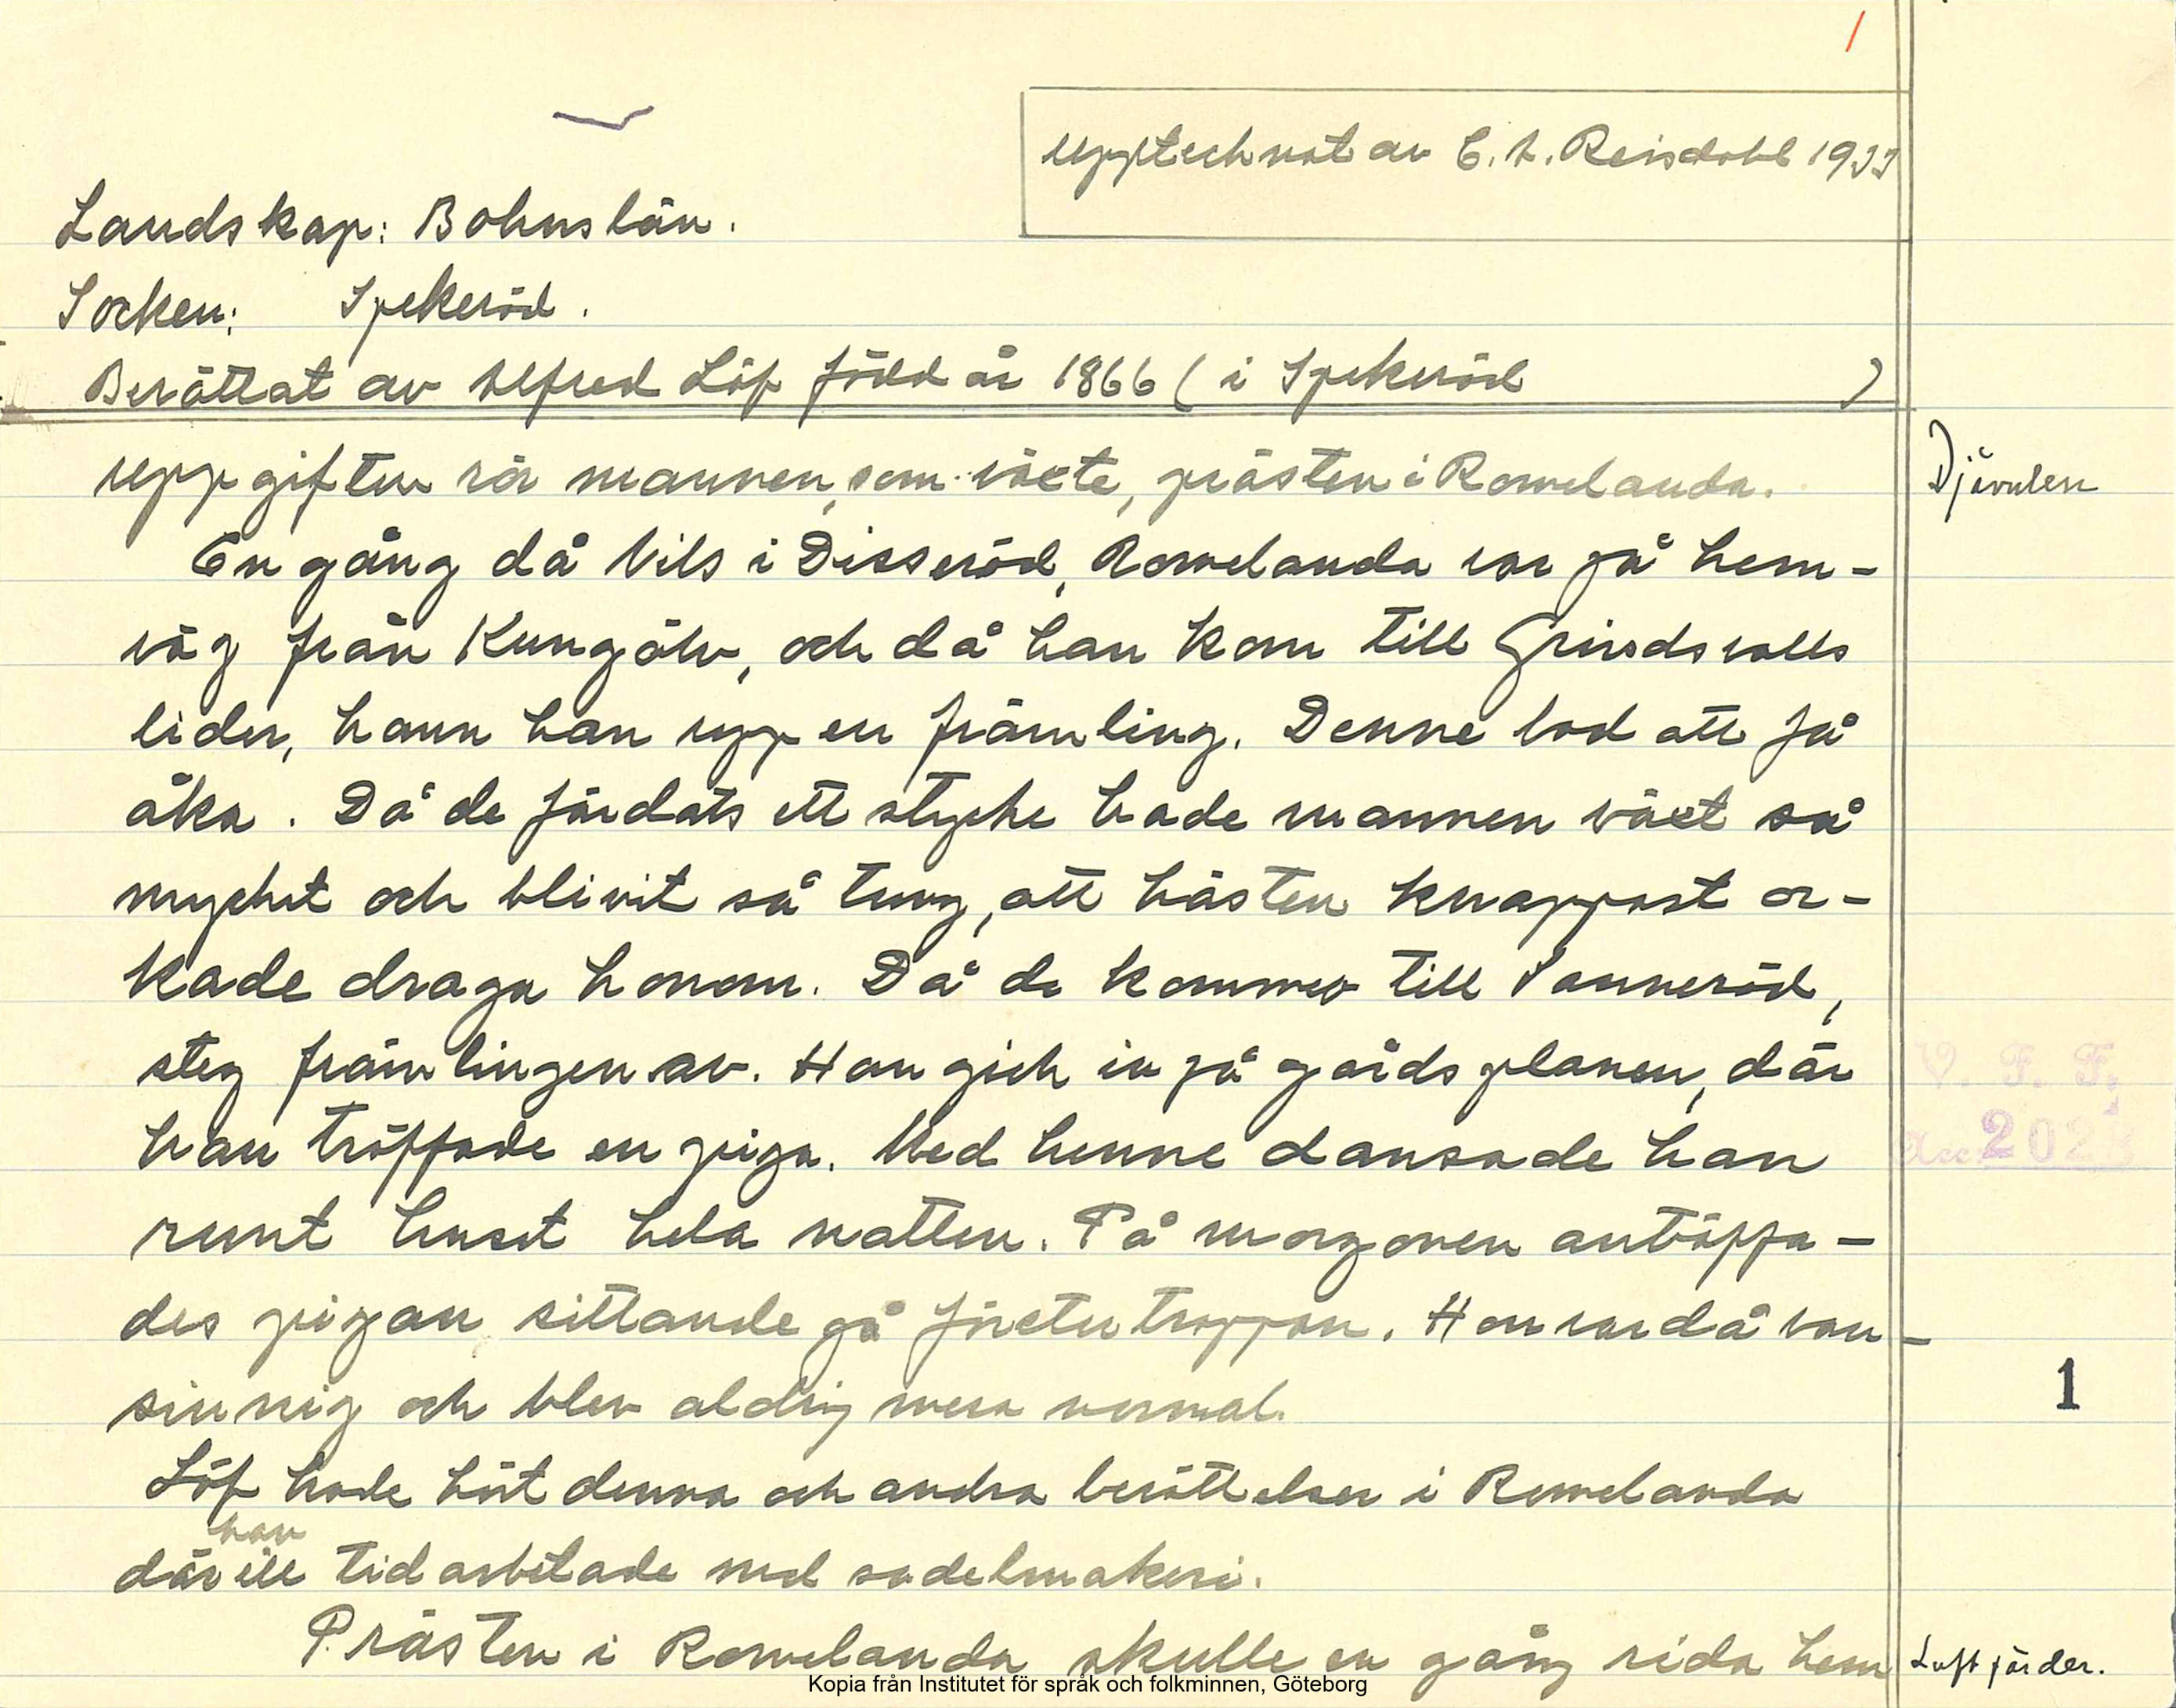 1
upptecknat av C. A. Reisdahl 1933
Landskap: Bohuslän.
Socken: Spekeröd.
Berättat av Alfred Löf född år 1866 (i Spekeröd )
uppgiften rör mannen, som växte, prästen i Romelanda.
Djävulen
En gång då Nils i Disseröd, Romelanda var på hem-
väg från Kungälv, och då han kom till Grindsvalls
lider, hann han upp en främling. Denne bad att få
åka. Då de färdats ett stycke hade mannen växt så
mycket och blivit så tung, att hästen knappast or-
kade draga honom. Då de kommo till Panneröd,
steg främlingen av. Han gick in på gårdsplanen, där
han träffade en piga. Med henne dansade han
runt huset hela natten. På morgonen anträffa-
des pigan sittande på förstutrappan. Hon var då van-
sinnig och blev aldrig mera normal.
Löf hade hört denna och andra berättelser i Romelanda
där han ell tid arbetade med sadelmakeri.
Prästen i Romelanda skulle en gång rida hem
Luftfärder.
V. F. F.
Acc. 202
1
Kopia från Institutet för språk och folkminnen, Göteborg